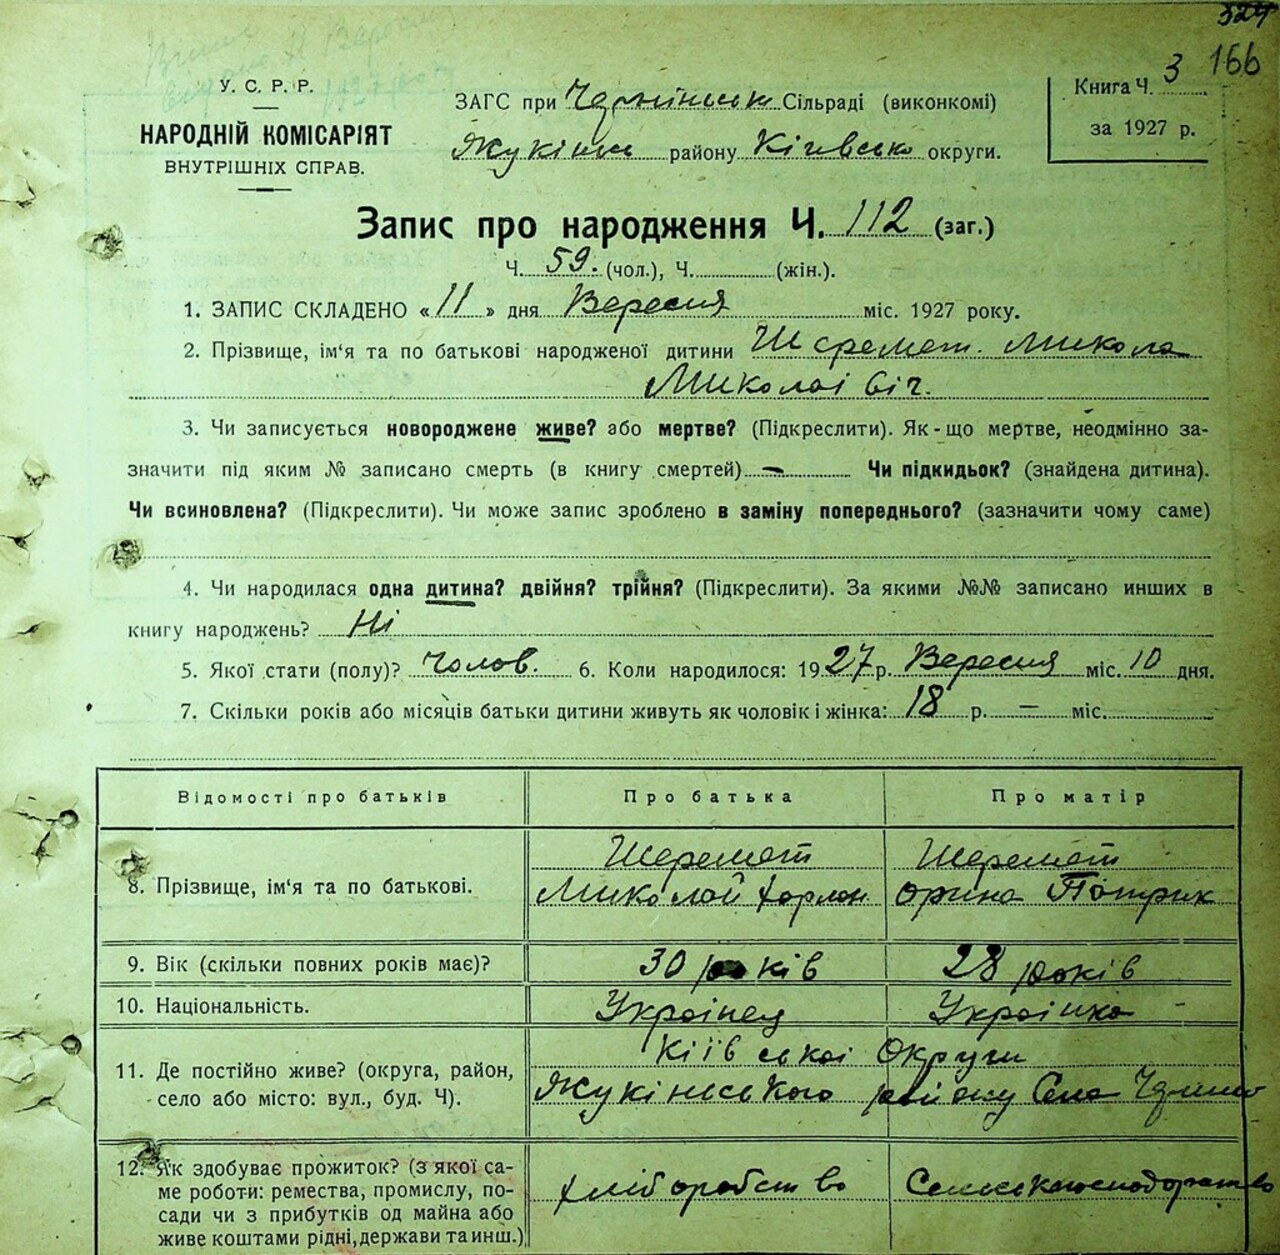 324
166
У. С. Р. Р.
НАРОДНІЙ КОМІСАРІЯТ
ВНУТРІШНІХ СПРАВ.
ЗАГС при Сільраді (виконкомі)
Жукінськ району Київсько округи.
Книга Ч. 3
за 1927 р.
Запис про народження Ч. 112 (заг.)
Ч. 59. (чол.), Ч. (жін.).
1. ЗАПИС СКЛАДЕНО «11» дня Вересня міс. 1927 року.
2. Прізвище, ім'я та по батькові народженої дитини Шеремет. Микола
Миколаівіч.
3. Чи записується новороджене живе? або мертве? (Підкреслити). Як-що мертве, неодмінно за-
значити під яким № записано смерть (в книгу смертей) — Чи підкидьок? (знайдена дитина).
Чи всиновлена? (Підкреслити). Чи може запис зроблено в заміну попереднього? (зазначити чому саме)
4. Чи народилася одна дитина? двійня? трійня? (Підкреслити). За якими №№ записано инших в
книгу народжень? Ні
5. Якої стати (полу)? Чолов. 6. Коли народилося: 1927 р. Вересня міс. 10 дня.
7. Скільки років або місяців батьки дитини живуть як чоловік і жінка: 18 р. — міс.
Відомості про батьків Про батька Про матір
8. Прізвище, ім'я та по батькові. Шеремет Шеремет
Миколай Харлон Орина Патрик
9. Вік (скільки повних років має)? 30 років 28 років
10. Національність. Украінец Украінка
11. Де постійно живе? (округа, район, село або місто: вул., буд. Ч). Кіївськоі Округи
Жукінського району Село
12. Як здобуває прожиток? (з якої са-
ме роботи: ремества, промислу, по-
сади чи з прибутків од майна або
живе коштами рідні, держави та инш.) хліборобство